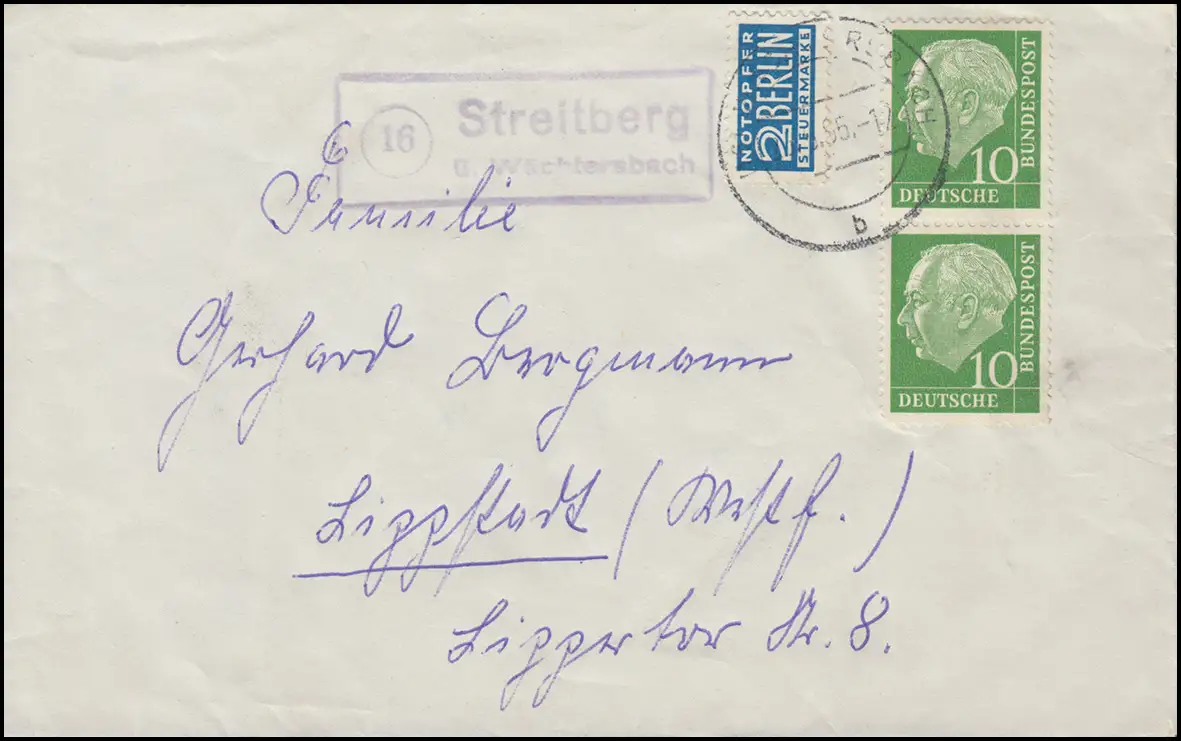 16
Streitberg
ü. Wächtersbach
NOTOPFER
2 BERLIN
STEUERMARKE
b
10
DEUTSCHE
BUNDESPOST
10
DEUTSCHE
BUNDESPOST
Familie
Gerhard Bergmann
Lippstadt (Westf.)
Lippertor Str. 8.